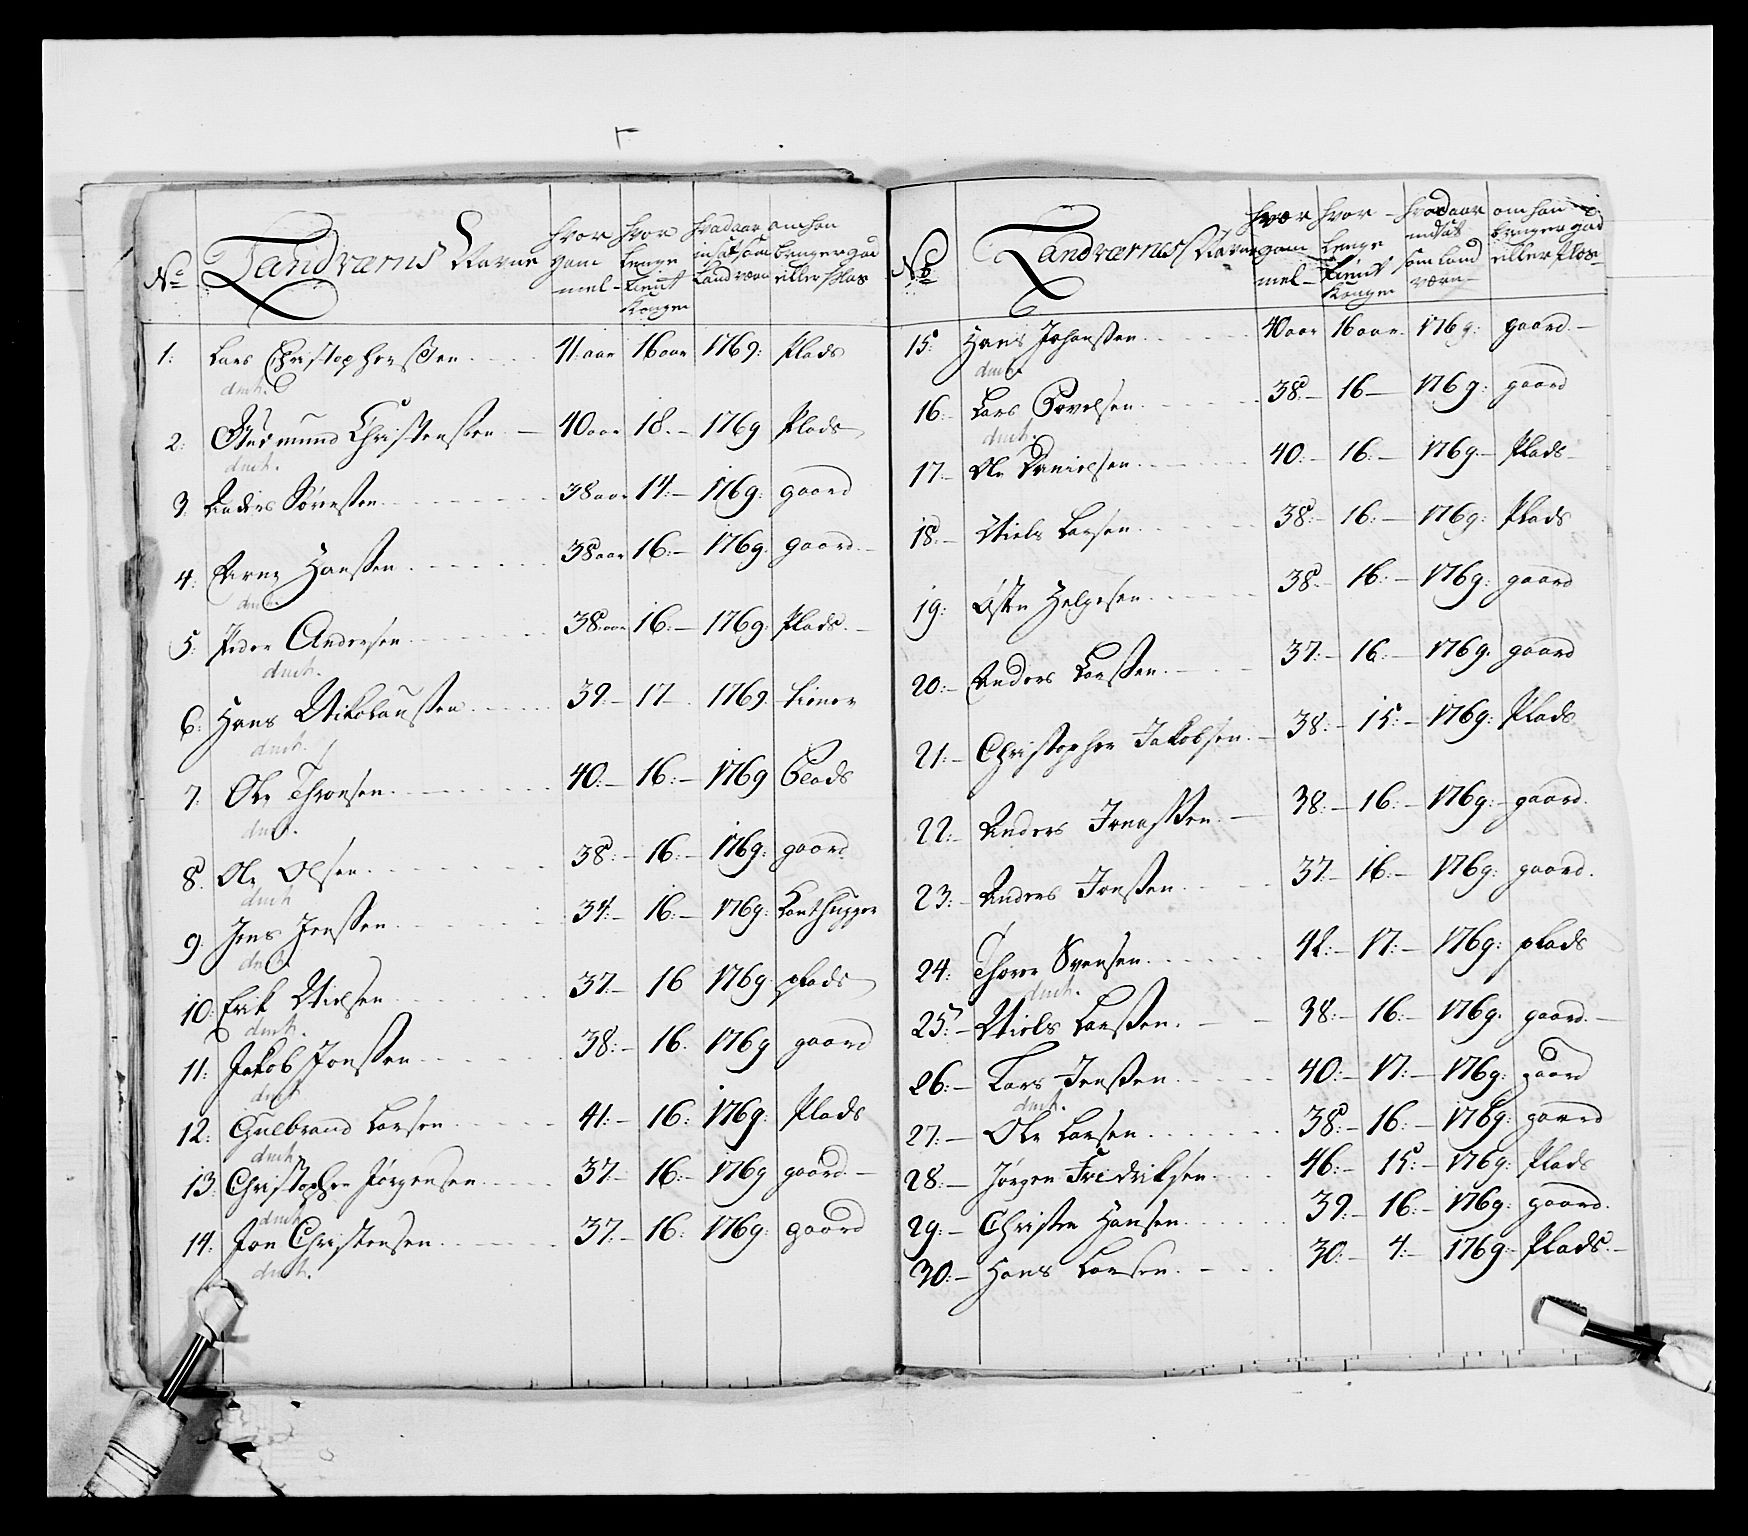 No Landværns Navne hvor gam mel hvor lenge tient Kongen hvad aar insat som Land værn om han bruger gaar eller plas
1: Lars Christophersen 41: aar 16 aar 1769: Plads
dmt.
2: Gudmund Christensen 40 aar 18.- 1769 Plads
dmt.
3: Anders Sørensen 38 aar 14:- 1769: gaard
4: Arne Hanssen 38 aar 16:- 1769: gaard.-
dmt.
5: Peder Andersen 38 aar 16:- 1769: Plads.-
dmt.
6: Hans Nikolaussen 39.- 17- 1769: tiener
dmt.
7: Ole Thronsen 40.- 16:- 1769 Plads
dmt.
8. Ole Olsen 38:- 16:- 1769: gaard
dmt
9: Jens Jenssen 34:- 16:- 1769:
dmt.
10: Erik Nielsen 37.- 16 1769 plads
dmt.
11: Jakob Jonssen 38:- 16. 1769 gaard
dmt
12: Gulbrand Larsen 41:- 16: 1769: Plads
dmt
13: Christopher Jørgensen 37.- 16:- 1769 gaard-
dmt
14: Jon Christensen 37:- 16: 1769: gaard
dmt.
No Landværnes Navne hvor gam mel- hvor lenge tient Kongen hvad aar indsat som land værn om han bruger gaard eller plas
15: Hans Johanssen 40 aar 16 aar. 1769: gaard-
dmt
16:- Lars Povelsen 38:- 16- 1769: gaard
dmt.
17:- Ole Danielsen 40:- 16:- 1769- Plads-
18:- Niels Larsen 38:- 16:- 1769: Plads
19: Østen Helgesen 38.- 16:- 1769: gaard
20:- Anders Larssen 37:- 16:- 1769. gaard
21:- Christopher Jakobsen 38:- 15:- 1769: Plads
22:- Anders 38:- 16:- 1769:- gaard.
23:- Anders Jonssen 37- 16:- 1769: gaard.
24: Thore Svensen 42:- 17:- 1769: plads
dmt.
25:- Niels Larssen 38:- 16:- 1769. gaard.-
26:- Lars Jenssen 40:- 17:- 1769: gaard
dmt.
27:- Ole Larsen 38:- 16:- 1769: gaard
28:- Jørgen Fredriksen 46:- 15:- 1769: Plads
29:- Christen Hansen 39:- 16:- 1769: gaard.
30:- Hans Larsen 30:- 4:- 1769:- Plads.-